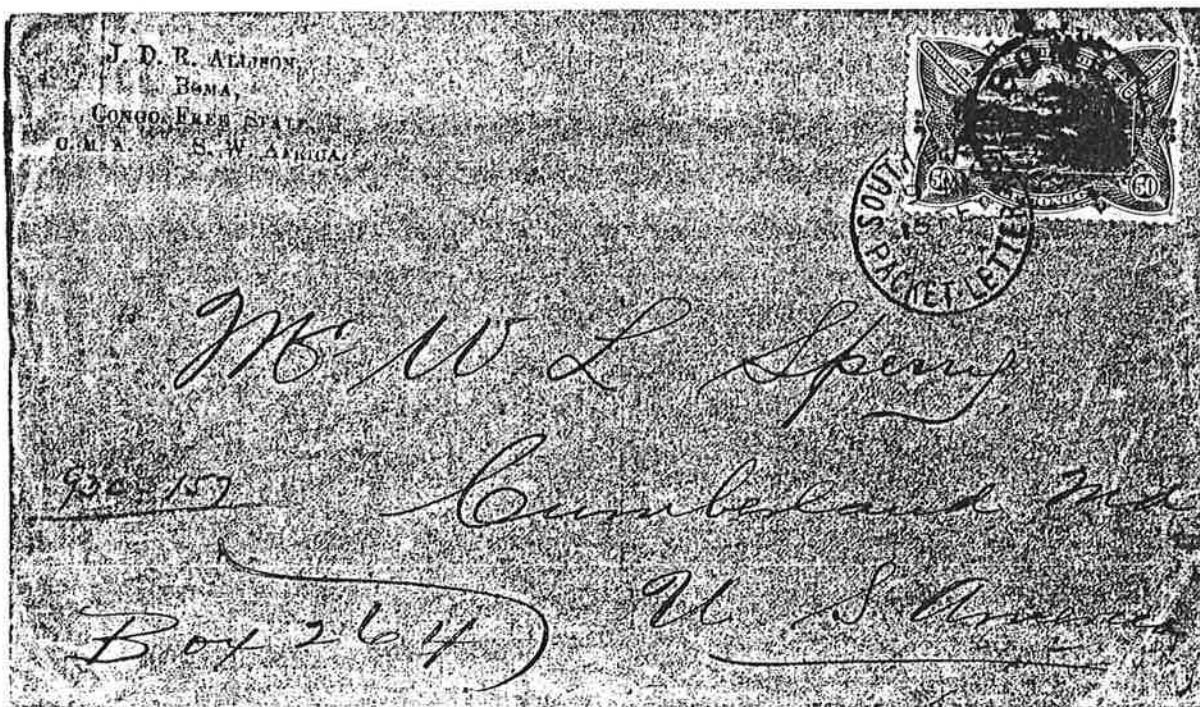 J. D. R. ALLISON,
BOMA,
CONGO FREE STATE
C. M. A. S. W. AFRICA.
50 CONGO 50
SOUTH
PACKET LETTER
Mr W L Sperry
Cumberland Md
930-157
U S America
Box 264